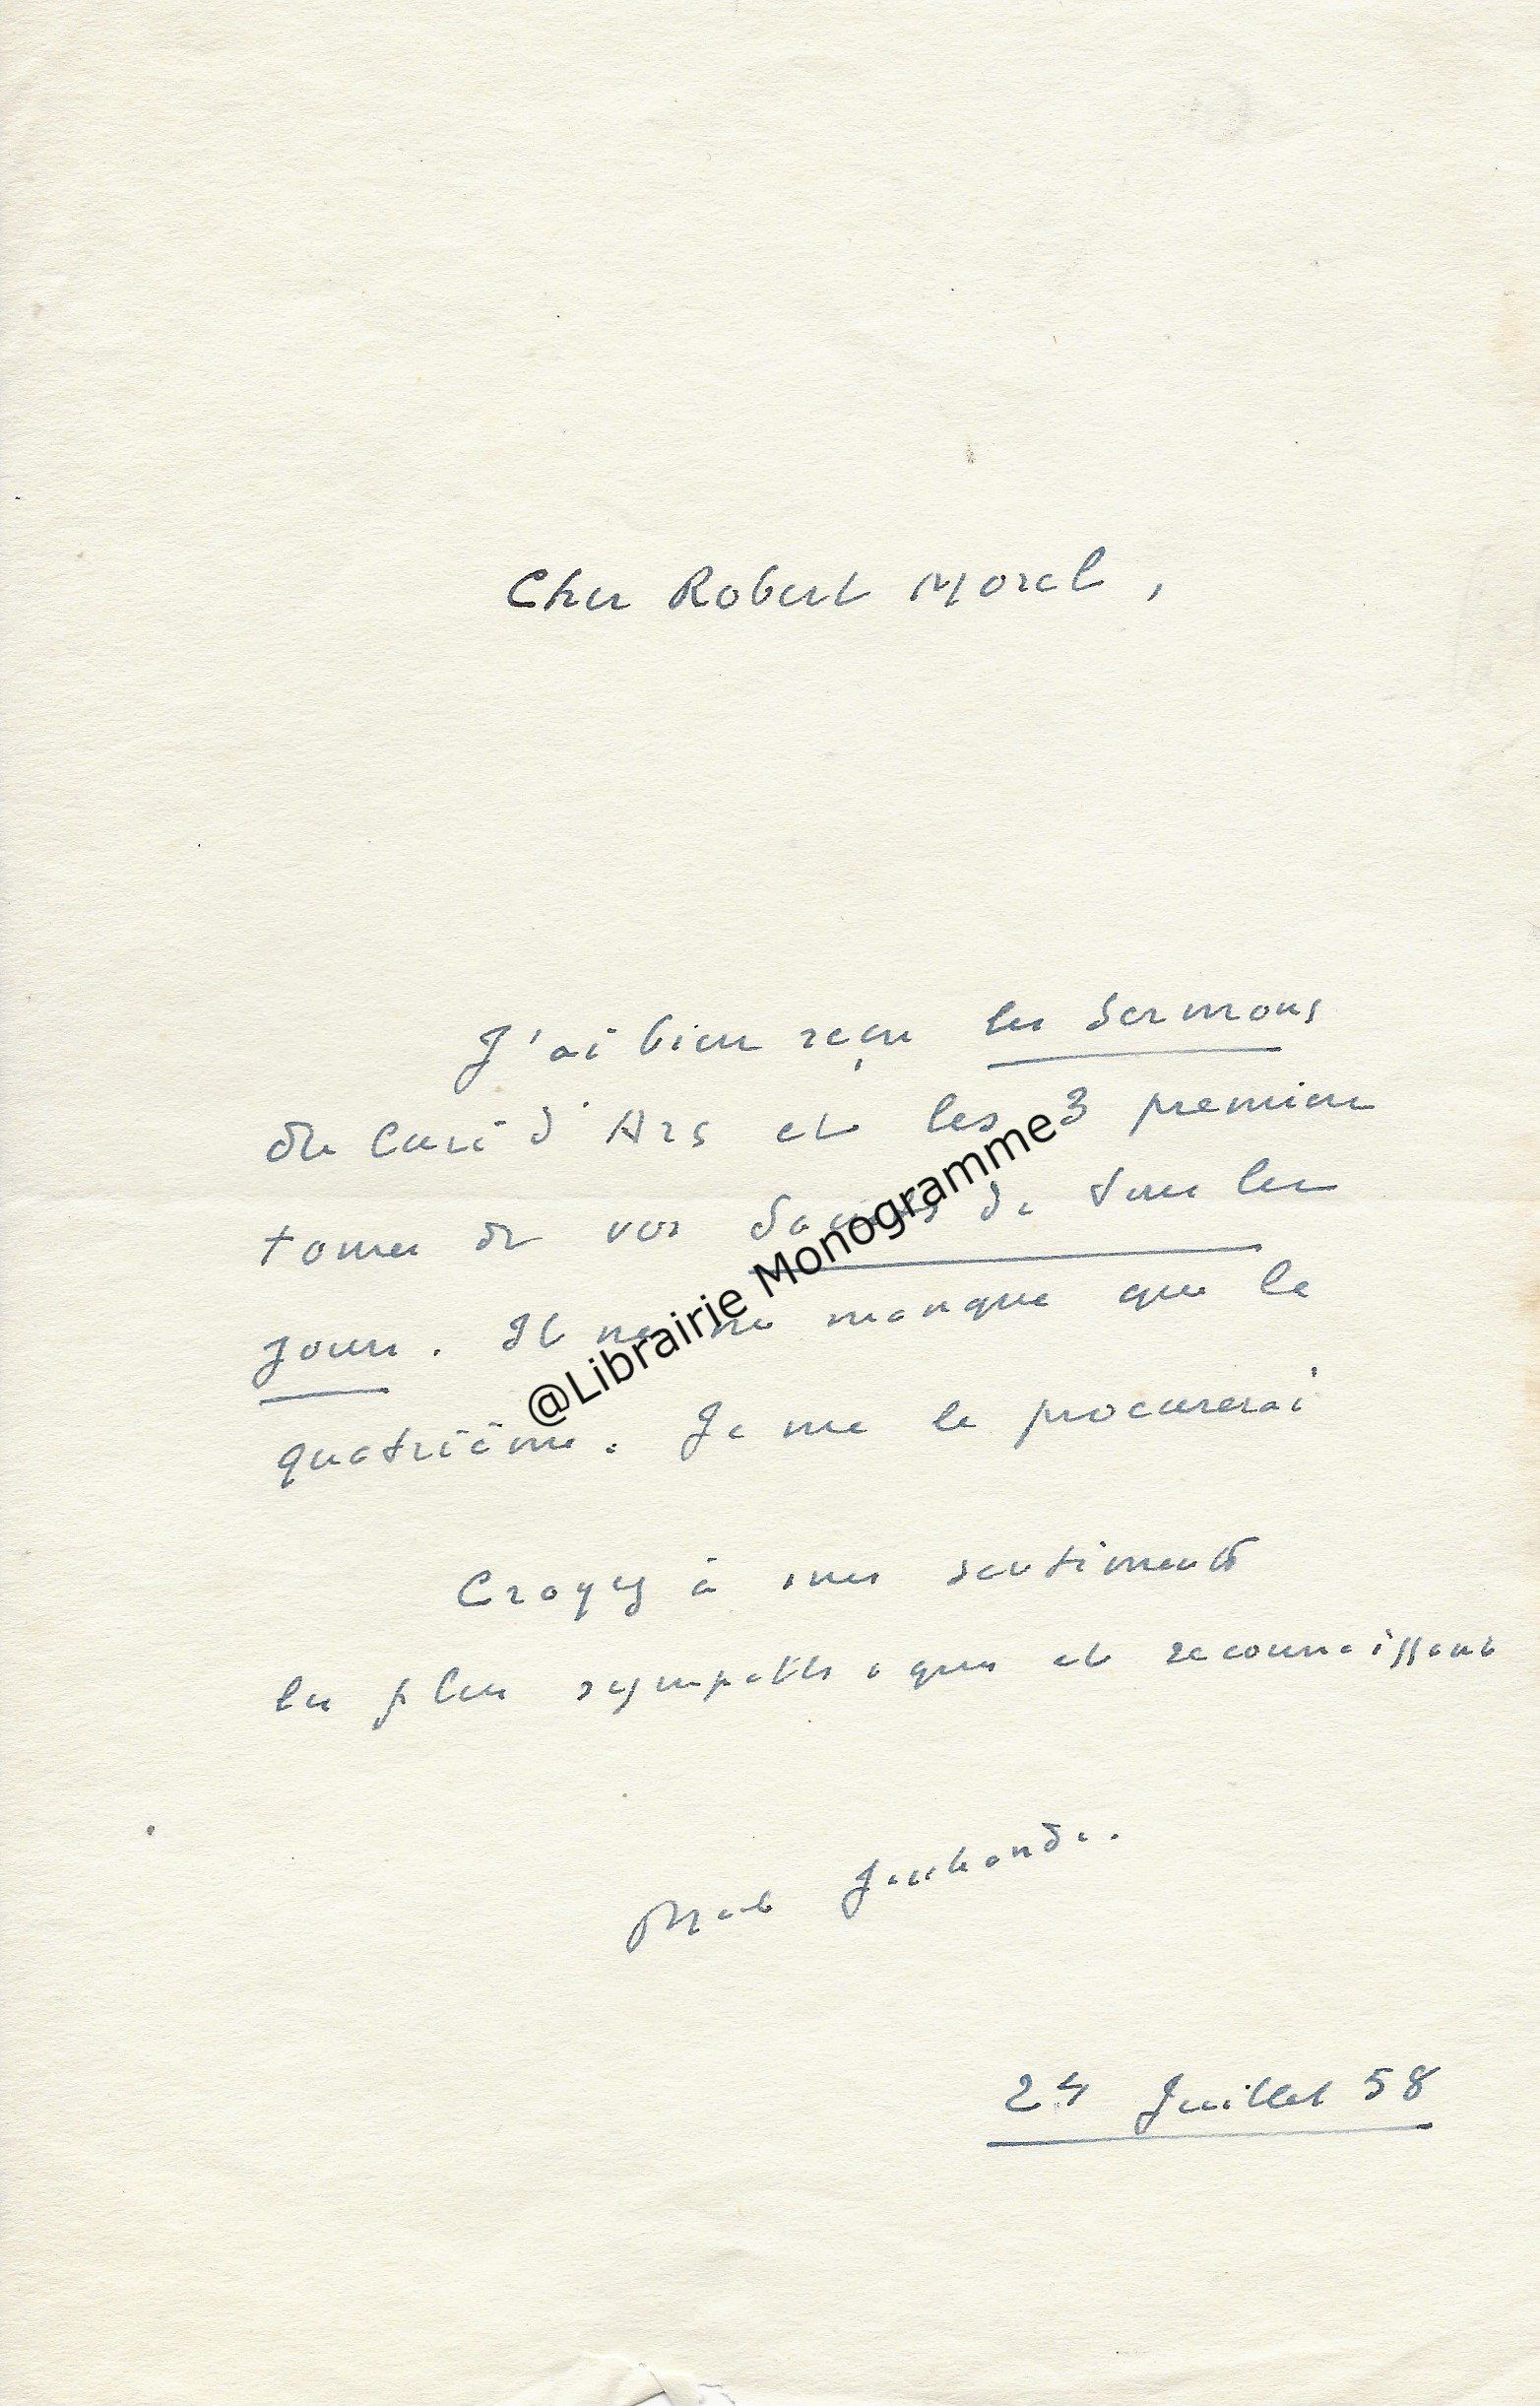 Cher Robert Morel,
J'ai bien reçu les Sermons
du Curé d'Ars et les 3 premiers
tomes de vos Saints de tous les
jours. Il ne me manque que le
quatrième. Je me le procurerai
Croyez à mes sentiments
les plus sympathiques et reconnaissants
Marcel Jouhandeau.
24 Juillet 58
@Librairie Monogramme